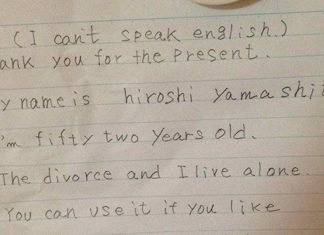 (I can't speak english.)
ank you for the present.
y name is hiroshi yamashi
'm fifty two years old.
The divorce and I live alone.
You can use it if you like